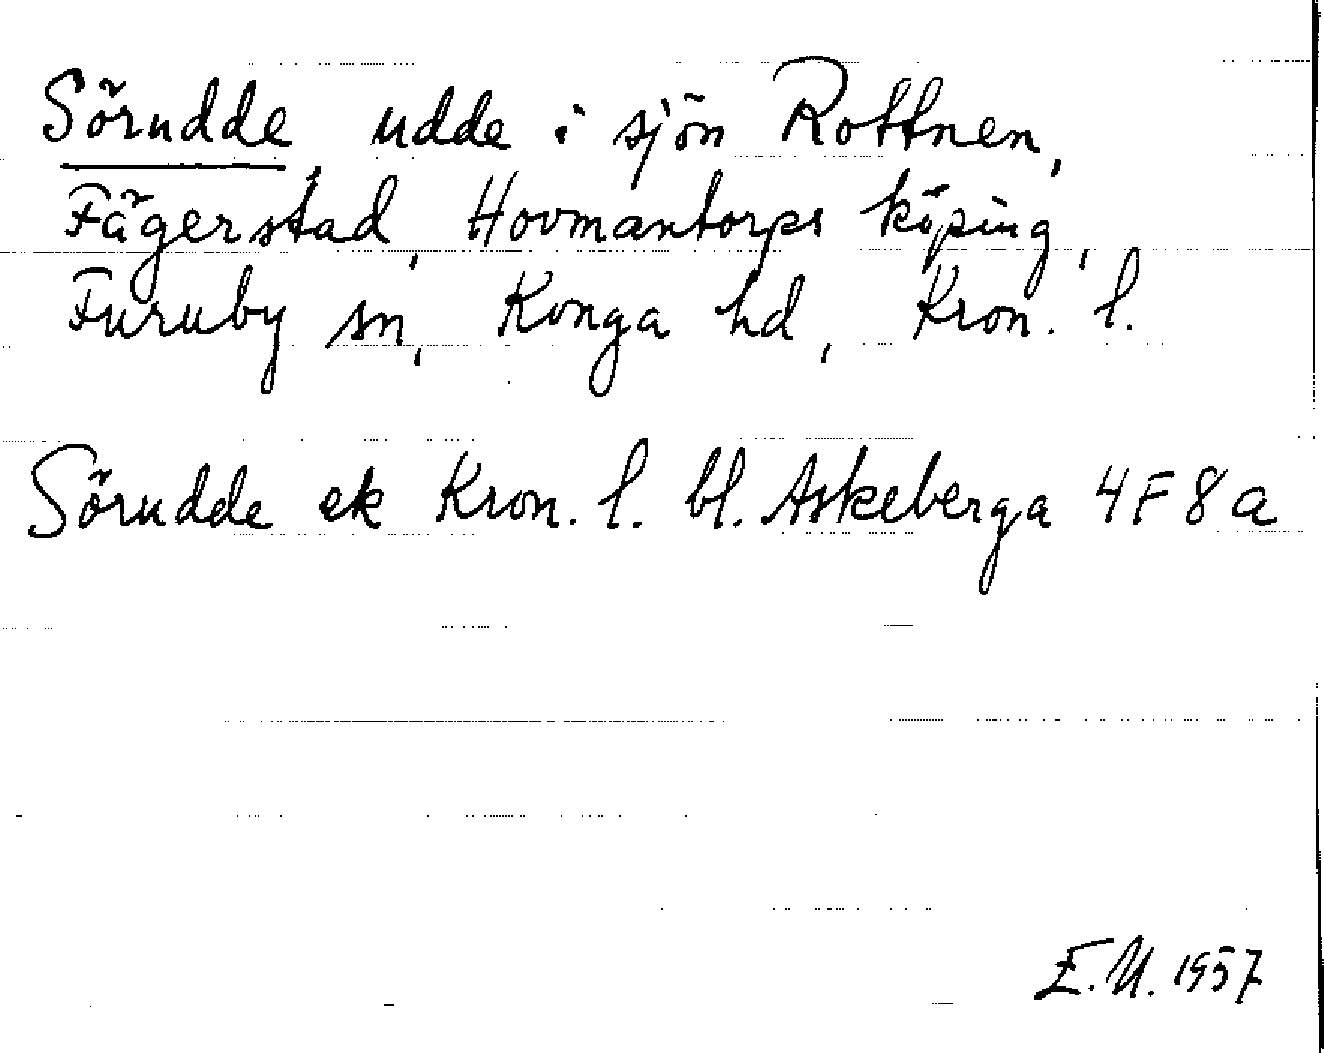 Sörudde, udde i sjön Rottnen,
Fägerstad, Hovmantorps köping,
Furuby sn, Konga hd, Kron. l.
Sörudde ek Kron. l. bl. Askeberga 4F8a
E.U. 1957